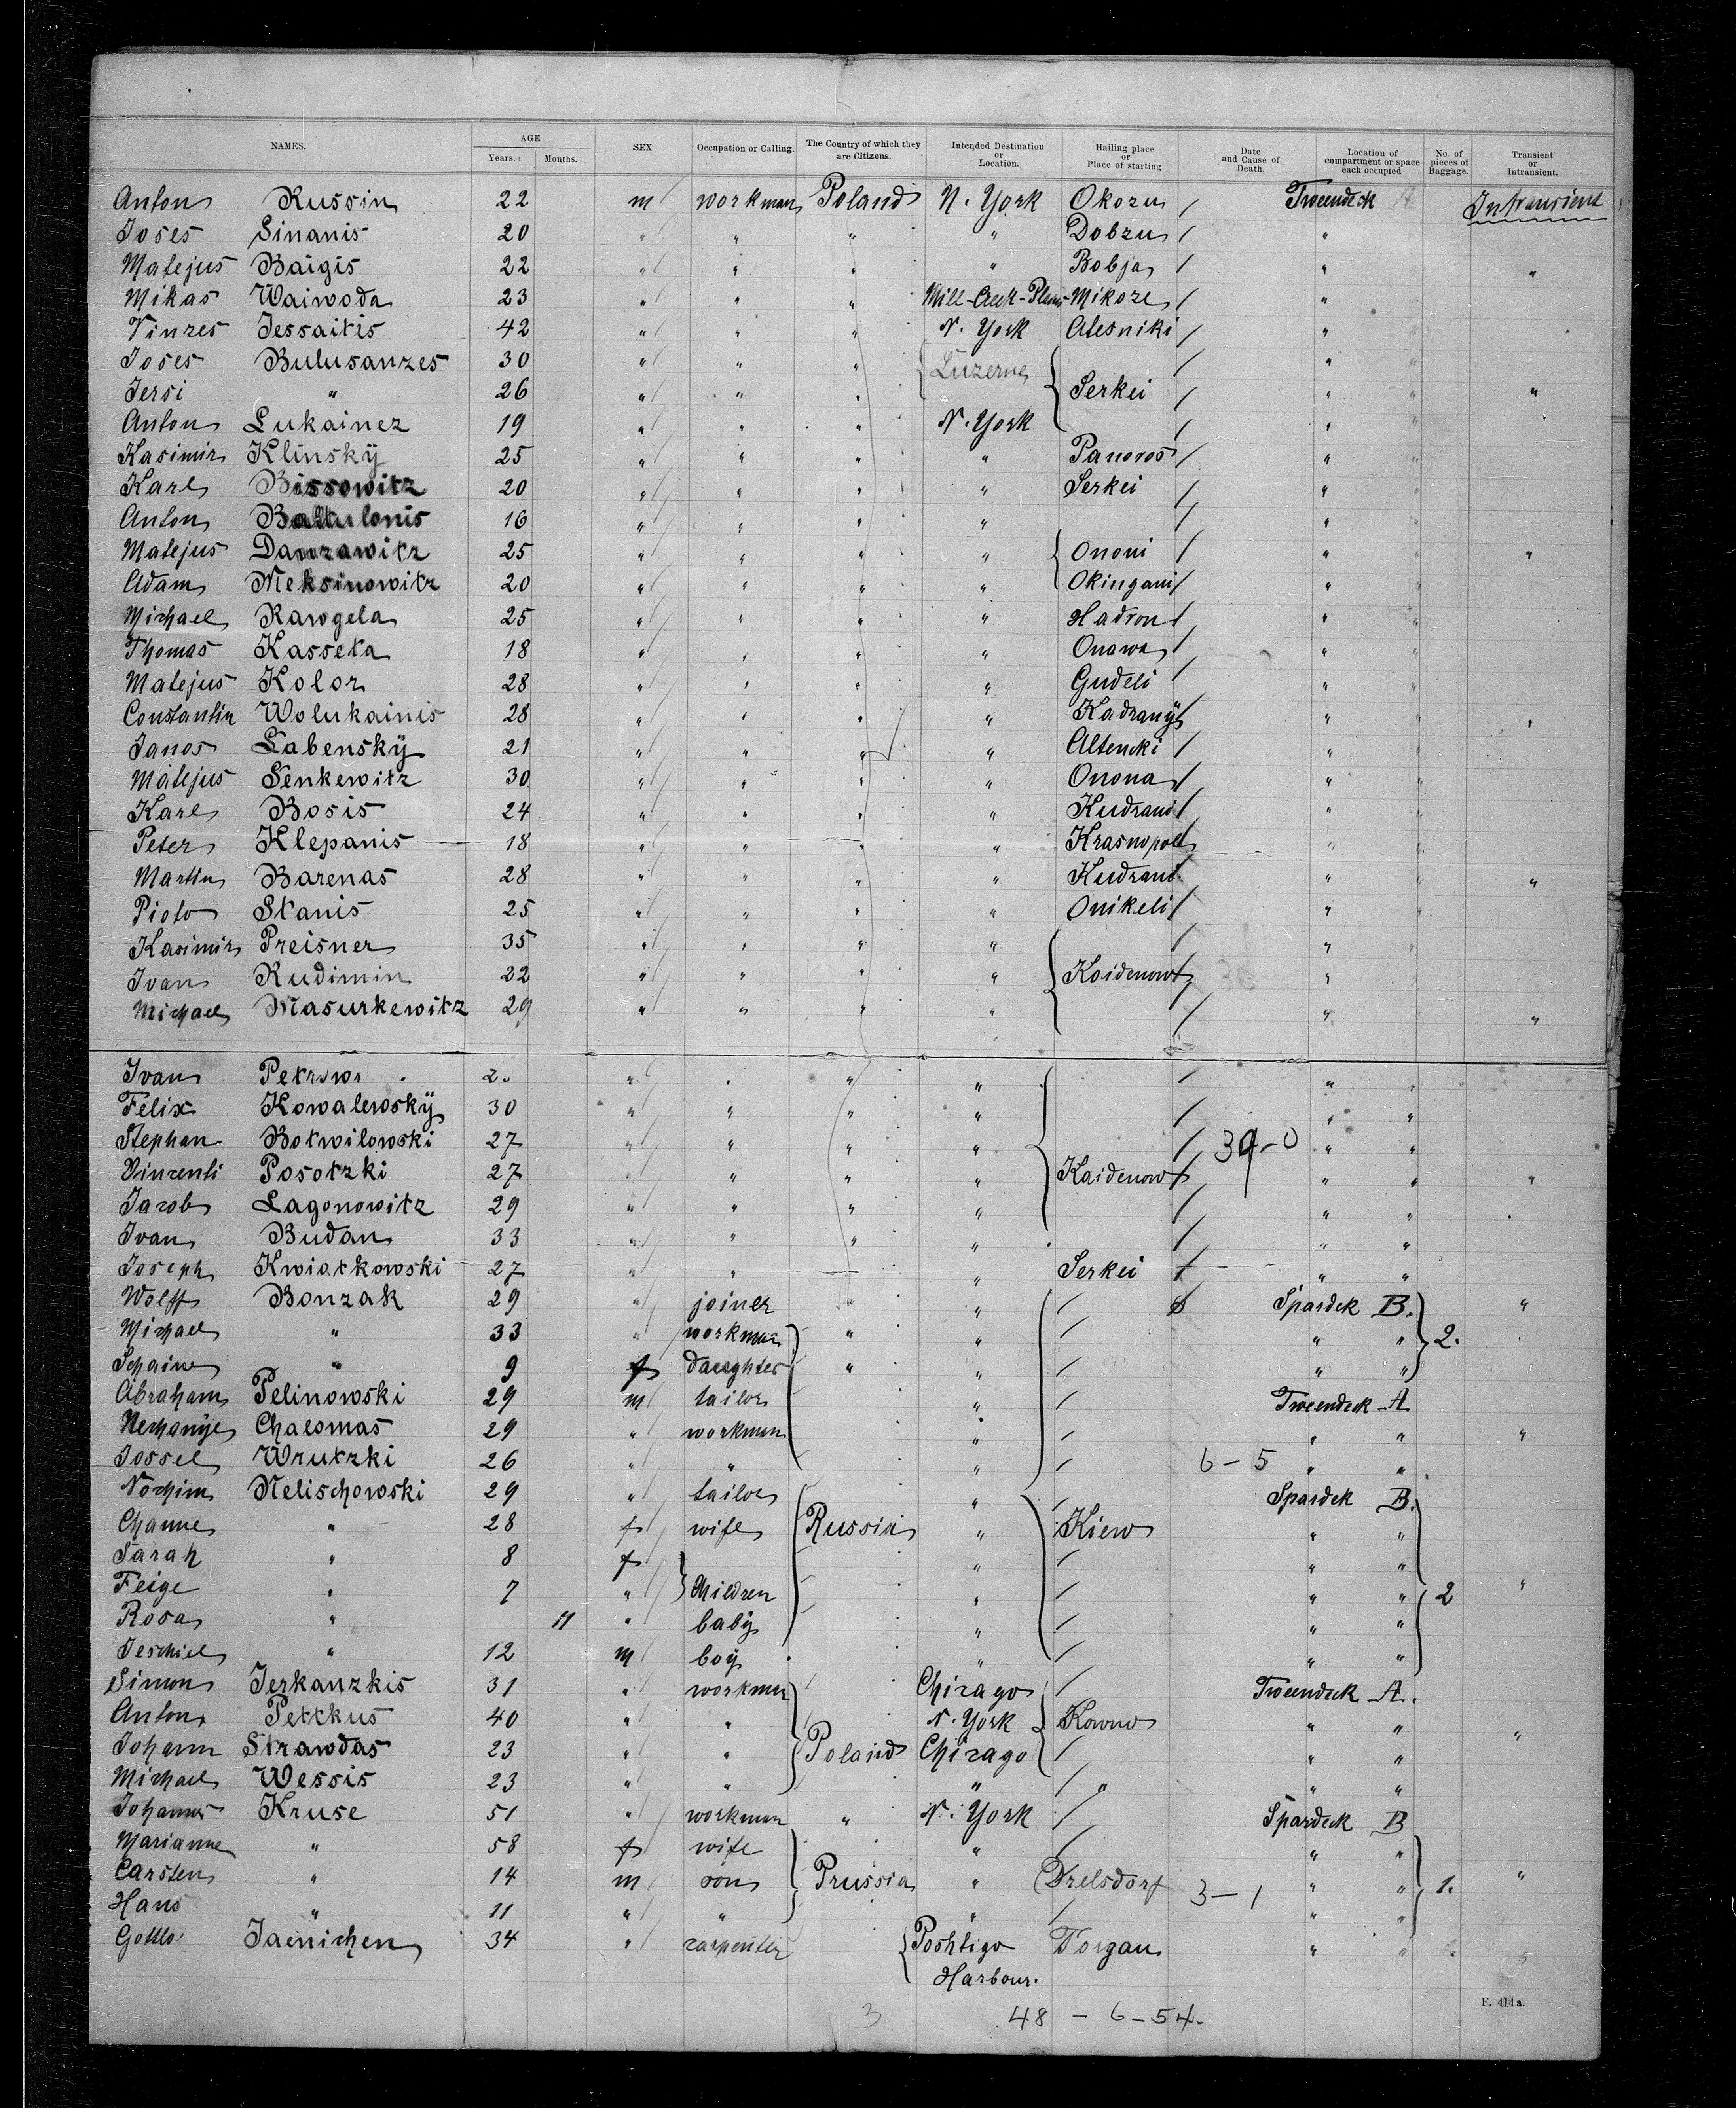 NAMES. AGE SEX Occupation or Calling. The Country of which they are Citizens. Intended Destination or Location. Hailing place or Place of starting. Date and Cause of Death. Location of compartment or space each occupied No. of pieces of Baggage. Transient or Intransient.
Years. Months.
Anton Russin 22 m workman Poland N. York Okozu / Tweendeck A Intransient
Joses Sinanis 20 " / " " " Dobzu / "
Matejus Baigis 22 " / " " " Bobja / " "
Mikas Waiwoda 23 " / " " Mill-Creek- Mikoze / "
Vinzes Jessaitis 42 " / " " N. York Alesniki / "
Joses Bulusanzes 30 " / " " Luzerne / " "
Jersi " 26 " / " " Serkei / " " "
Anton Lukainez 19 " / " " N. York / " "
Kasimir Klinsky 25 " / " " " Panoros / " "
Karl Bissowitz 20 " / " " " Serkei / " "
Anton Baltulonis 16 " / " " / " "
Matejus Danzawitz 25 " / " " " Ononi / " " "
Adam Meksinowitz 20 " / " " " Okingani / " "
Michael Rawgela 25 " / " " " Hadron / " "
Thomas Kasseta 18 " / " " " Onawa / " "
Matejus Kolor 28 " / " " " Gudeli / " "
Constantin Wolukainis 28 " / " " " Kadrany / " " "
Janos Labensky 21 " / " " " Altencki / " "
Matejus Senkewitz 30 " / " " " Onona / " "
Karl Bosis 24 " / " " " Kudrani / " "
Peter Klepanis 18 " / " " " Krasnopol / " "
Martin Barenas 28 " / " " " Kudrani " " "
Pioto Stanis 25 " / " " " Onikeli / " "
Kasimir Preisner 35 " / " " " / " "
Ivan Rudimin 22 " / " " " Koidenow / "
Michael Masurkewitz 29 " / " " " / " " "
Ivan Petrow " / " " " / " "
Felix Kowalewsky 30 " / " " " / " "
Stephan Botwilowski 27 " / " " " / 39-0 " "
Vinzenti Posotzki 27 " / " " " Kaidenow / " " "
Jacob Lagonowitz 29 " / " " " / " " "
Ivan Budan 33 " / " " " / " "
Joseph Kwiatkowski 27 " / " " Serkei / " "
Wolff Bonzak 29 " / joiner " / Spardek B. "
Michael " 33 " / workman " " / " " 2.
Schaine " 9 f daughter " " / " "
Abraham Pelinowski 29 m / tailor " / Tweendeck A
Nechanje Chalomas 29 " / workman " / " " "
Jossel Wrutzki 26 " / " " / 6-5 " "
Nochim Melischowski 29 " / tailor " / Spardek B.
Channe " 28 f wife Russia " Kiew " "
Sarah " 8 f " / " "
Feige " 7 " Children " / " " 2 "
Rosa " 11 " baby " / " "
Jeschiel " 12 m / boy " / " "
Simon Jerkanzkis 31 " / workman Chicago / Tweendeck A.
Anton Petckus 40 " / " N. York Kowno " " "
Johann Strawdas 23 " / " Poland Chicago / " "
Michael Wessis 23 " / " " / " " "
Johannes Kruse 51 " / workman " N. York / Spardeck B
Marianne " 58 f wife " / " "
Carsten " 14 m son Prussia " Drelsdorf 3-1 " " 1. "
Hans " 11 " " " / " "
Gottlo Jaenichen 34 " / carpenter Poshtigo Torgau " "
Harbour.
3 48 - 6 - 54.
F. 414 a.